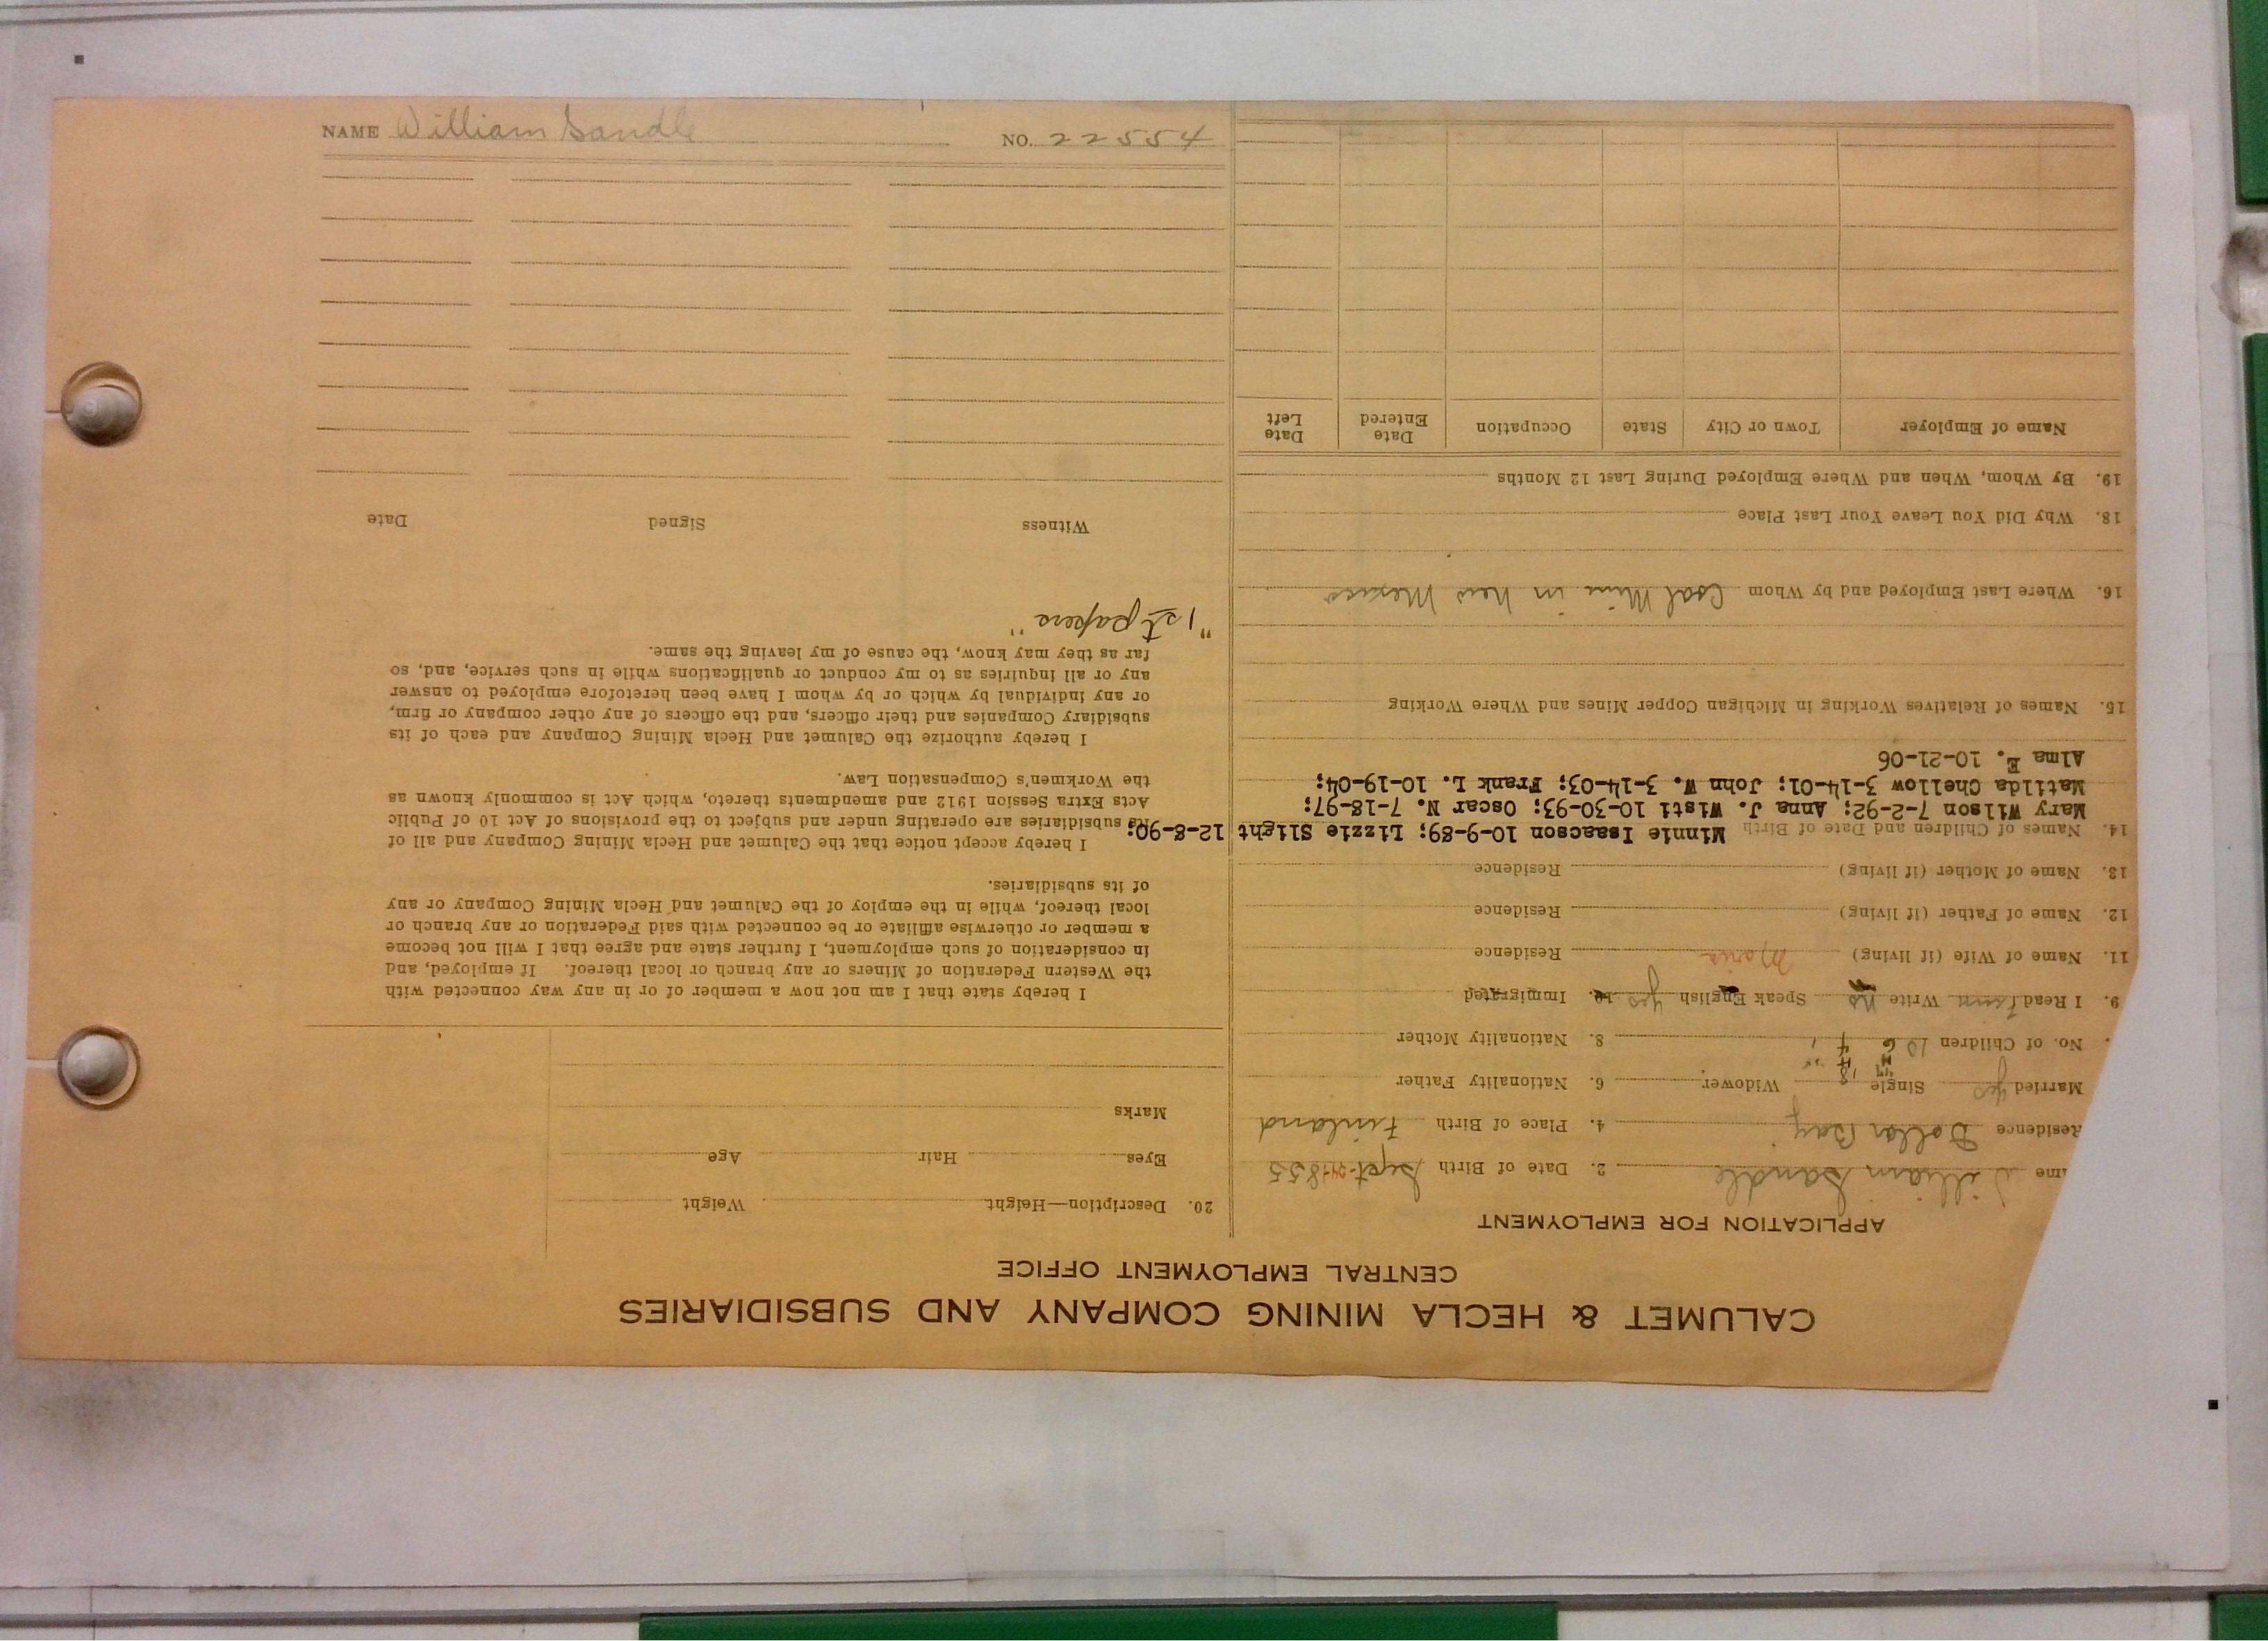 CALUMET & HECLA MINING COMPANY AND SUBSIDIARIES
CENTRAL EMPLOYMENT OFFICE
APPLICATION FOR EMPLOYMENT
ame William Sandle 2. Date of Birth Sept-24-1855
Residence Dollar Bay 4. Place of Birth Finland
Married yes Single Widower 6. Nationality Father
No. of Children 10 8. Nationality Mother
9. I Read Finn Write no Speak English yes 10. Immigrated
11. Name of Wife (if living) Residence
12. Name of Father (if living) Residence
13. Name of Mother (if living) Residence
14. Names of Children and Date of Birth Minnie Isaacson 10-9-89; Lizzie Slight 12-8-90;
Mary Wilson 7-2-92; Anna J. Wisti 10-30-93; Oscar N. 7-18-97;
Matilda Chellow 3-14-01; John W. 3-14-03; Frank L. 10-19-04;
Alma E. 10-21-06
15. Names of Relatives Working in Michigan Copper Mines and Where Working
16. Where Last Employed and by Whom Coal Mine in New Mexico
18. Why Did You Leave Your Last Place
19. By Whom, When and Where Employed During Last 12 Months
Name of Employer Town or City State Occupation Date Entered Date Left
20. Description—Height Weight
Eyes Hair Age
Marks
I hereby state that I am not now a member of or in any way connected with
the Western Federation of Miners or any branch or local thereof. If employed, and
in consideration of such employment, I further state and agree that I will not become
a member or otherwise affiliate or be connected with said Federation or any branch or
local thereof, while in the employ of the Calumet and Hecla Mining Company or any
of its subsidiaries.
I hereby accept notice that the Calumet and Hecla Mining Company and all of
its subsidiaries are operating under and subject to the provisions of Act 10 of Public
Acts Extra Session 1912 and amendments thereto, which Act is commonly known as
the Workmen's Compensation Law.
I hereby authorize the Calumet and Hecla Mining Company and each of its
subsidiary Companies and their officers, and the officers of any other company or firm,
or any individual by which or by whom I have been heretofore employed to answer
any or all inquiries as to my conduct or qualifications while in such service, and, so
far as they may know, the cause of my leaving the same.
"1st papers"
Witness Signed Date
NAME William Sandle NO. 22554